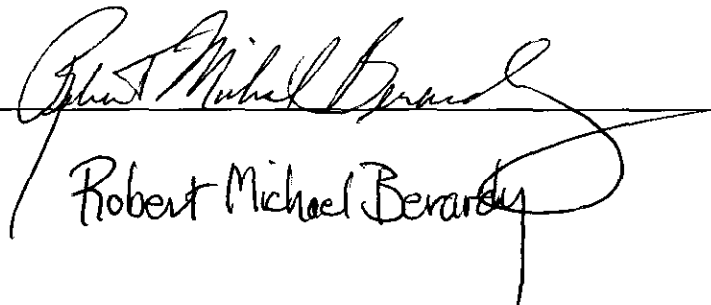 Robert Michael Berardy
Robert Michael Berardy